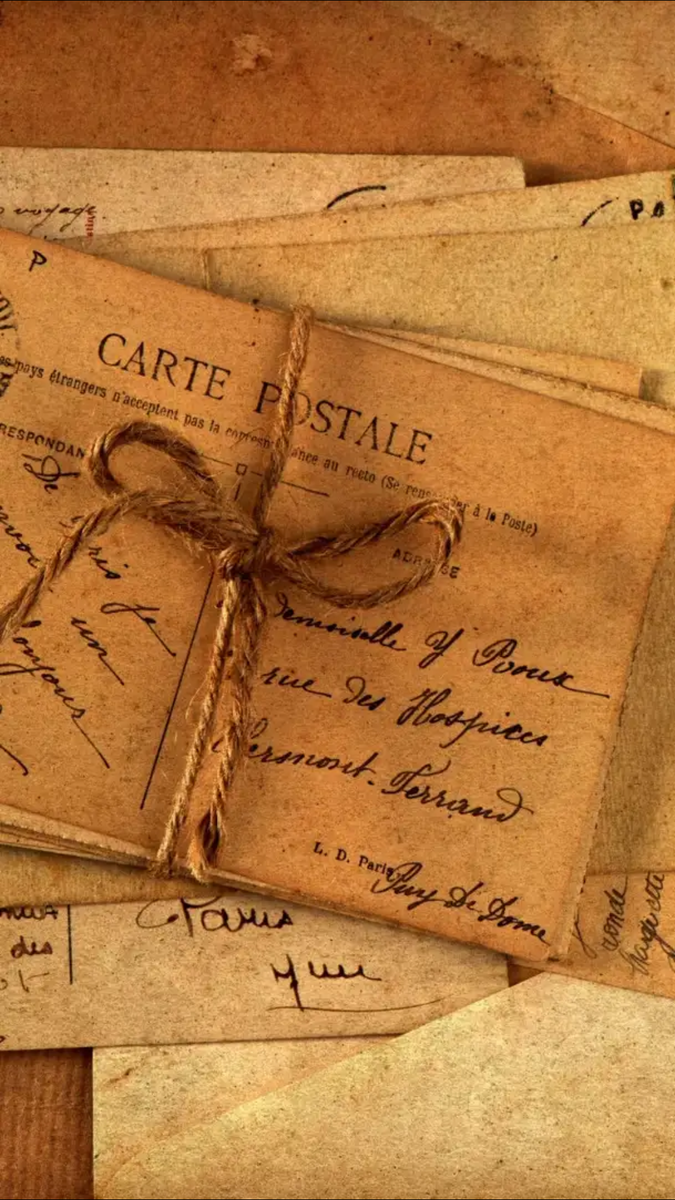 voyage
PA
P
CARTE POSTALE
pays étrangers n'acceptent pas la corresp ance au recto (Se rens er à la Poste)
RESPONDAN
ADR SE
De
ris je
un
toujours
demoiselle Y
rue des Hospices
ermont-Ferrand
L. D. Paris
Puy De Dome
Paris
des